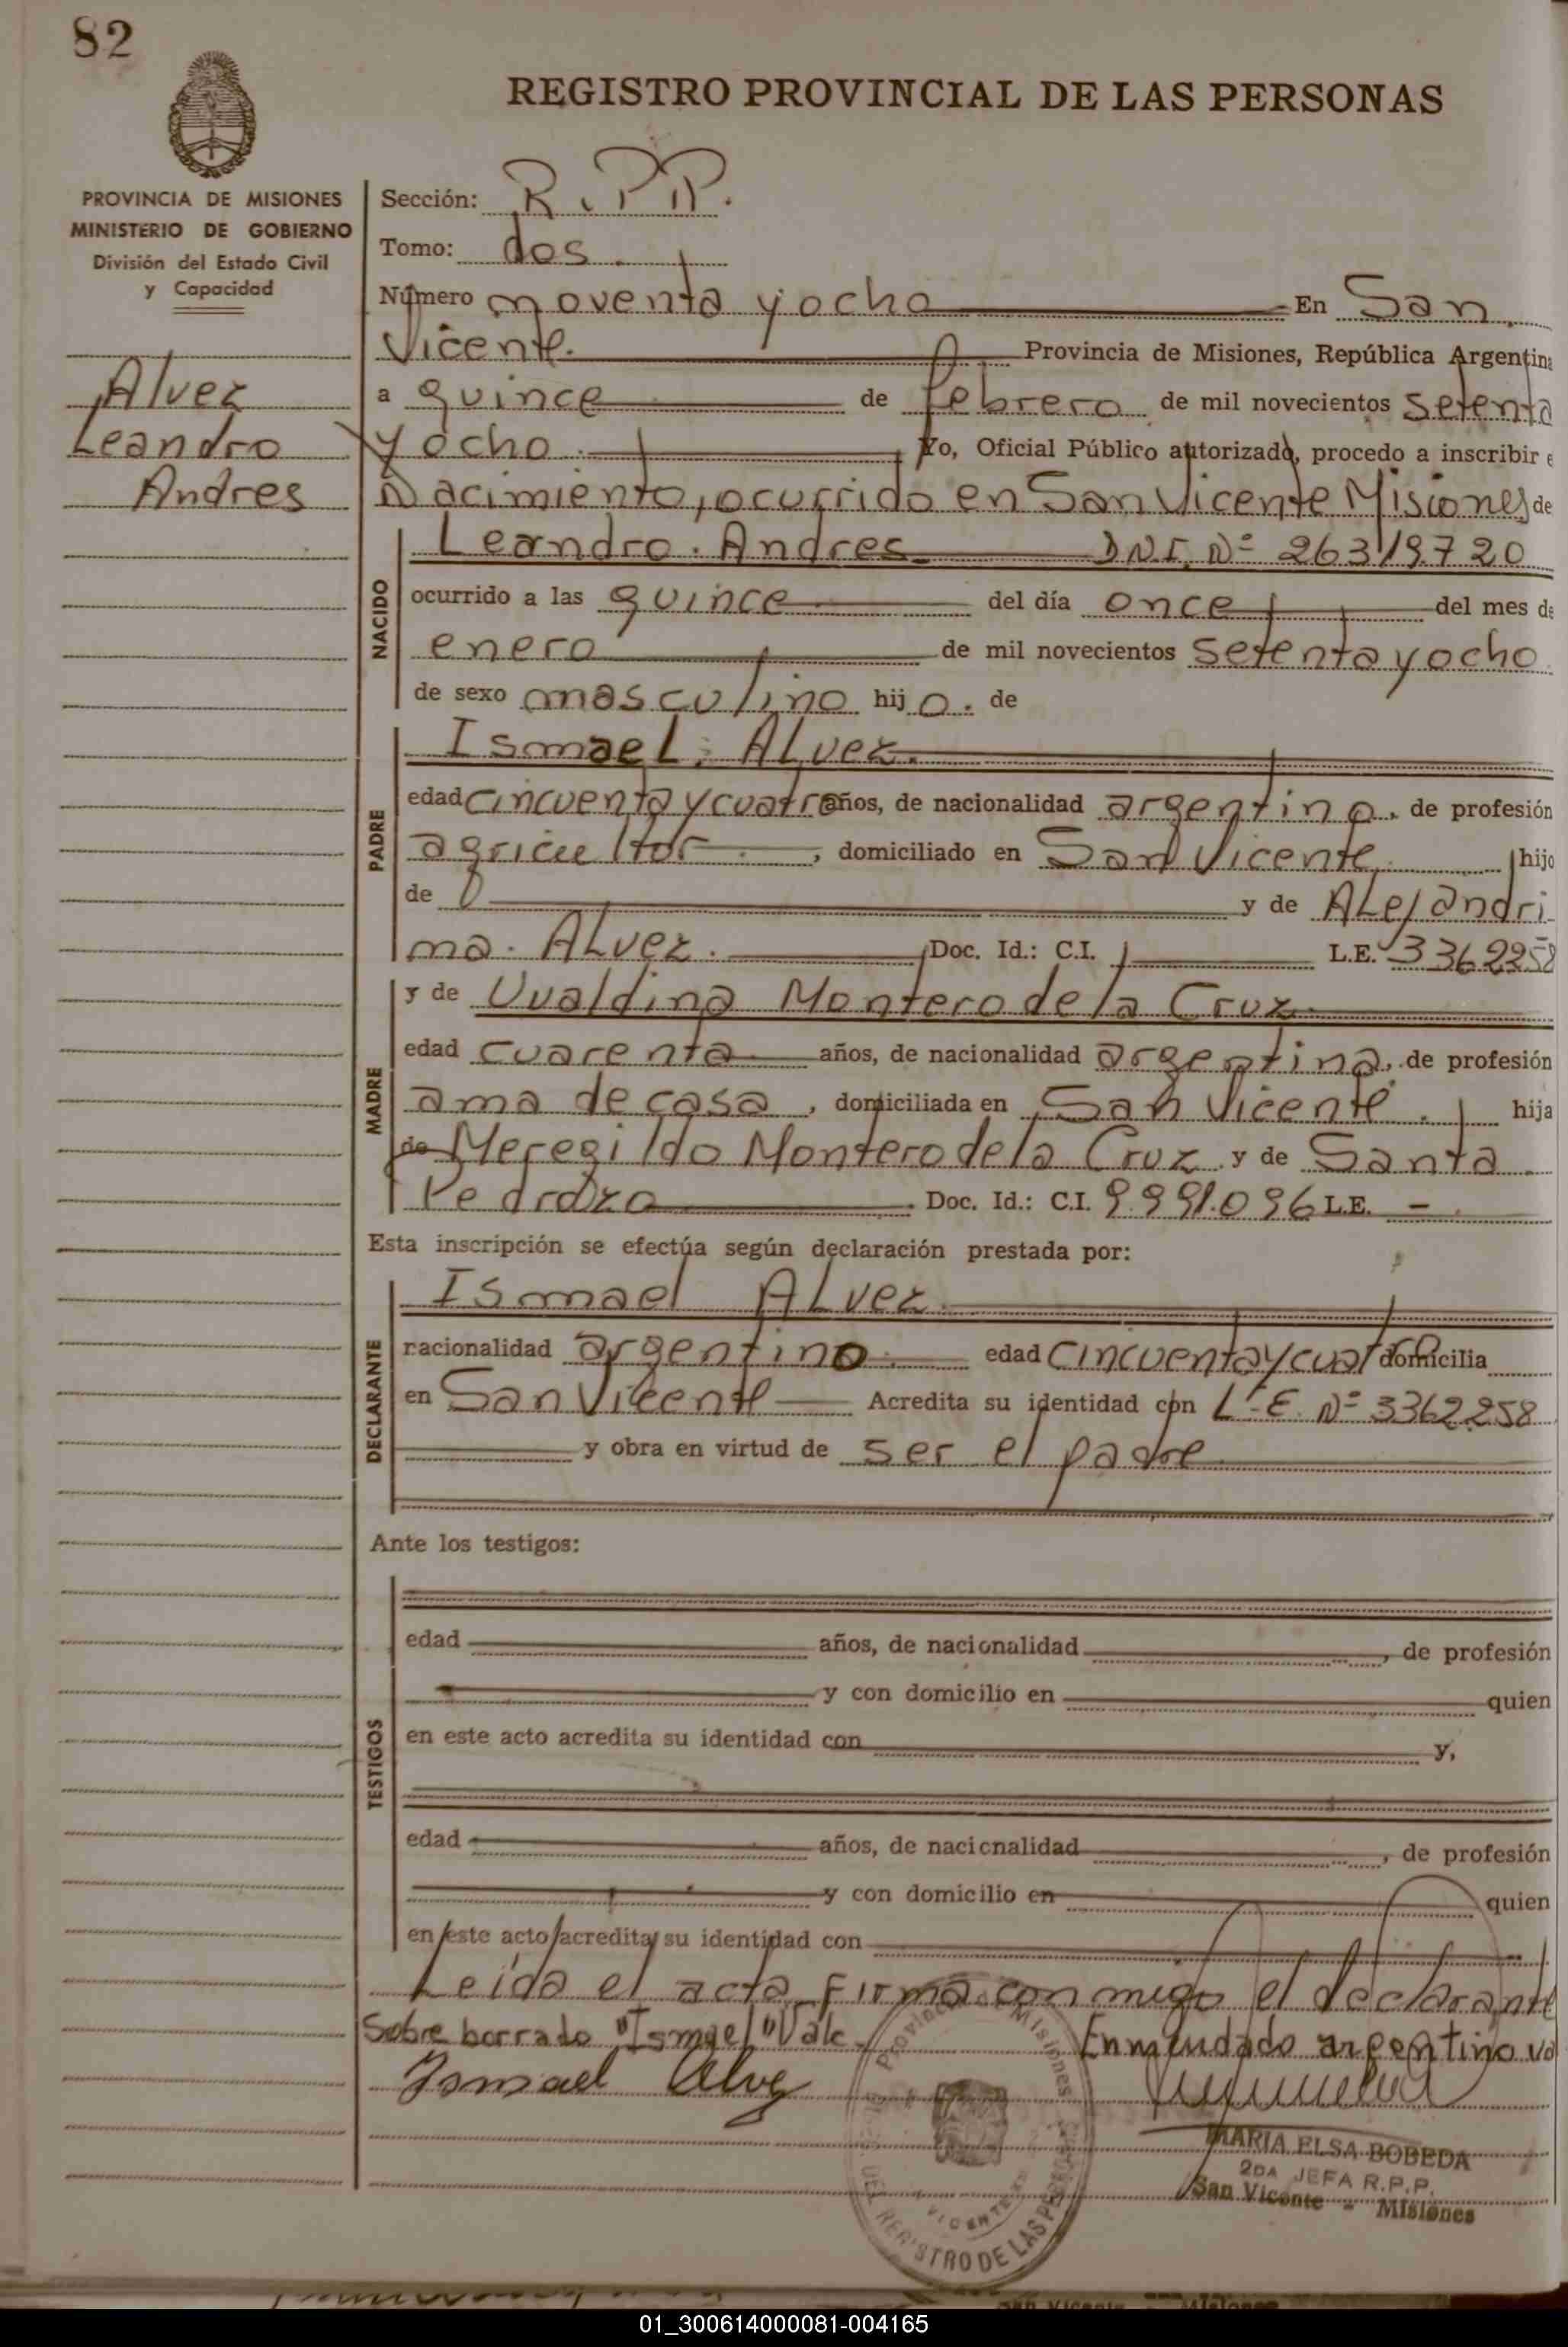 82
REGISTRO PROVINCIAL DE LAS PERSONAS
PROVINCIA DE MISIONES
MINISTERIO DE GOBIERNO
División del Estado Civil
y Capacidad
Alvez
Leandro
Andres
Sección: R.P.P.
Tomo: dos.
Número noventa y ocho En San
Vicente. Provincia de Misiones, República Argentina
a quince de febrero de mil novecientos setenta
y ocho. Yo, Oficial Público autorizado, procedo a inscribir e
Nacimiento, ocurrido en San Vicente Misiones de
NACIDO
Leandro. Andres D.N.I. Nº 26319720
ocurrido a las quince del día once del mes de
enero de mil novecientos setenta y ocho
de sexo masculino hijo. de
PADRE
Ismael. Alvez.
edad cincuenta y cuatro años, de nacionalidad argentino. de profesión
agricultor, domiciliado en San Vicente hijo
de y de Alejandri
na. Alvez. Doc. Id.: C.I. L.E. 3362258
MADRE
y de Uvaldina Montero de la Cruz
edad cuarenta años, de nacionalidad argentina, de profesión
ama de casa, domiciliada en San Vicente. hija
de Meregildo Montero de la Cruz y de Santa
Pedrozo Doc. Id.: C.I. 9.991.096 L.E. -
Esta inscripción se efectúa según declaración prestada por:
DECLARANTE
Ismael Alvez
nacionalidad argentino. edad cincuenta y cuatro domicilia
en San Vicente Acredita su identidad con L.E. Nº 3362258
y obra en virtud de ser el padre
Ante los testigos:
TESTIGOS
edad años, de nacionalidad, de profesión
y con domicilio en quien
en este acto acredita su identidad con y,
edad años, de nacionalidad, de profesión
y con domicilio en quien
en este acto acredita su identidad con
Leída el acta firma conmigo el declarante
Sobre borrado "Ismael" Vale Enmendado argentino va
Ismael Alve
Provincia de Misiones
VICENTE
REGISTRO DE LAS PERSONAS
MARIA ELSA BOBEDA
2DA JEFA R.P.P.
San Vicente - Misiones
01_300614000081-004165